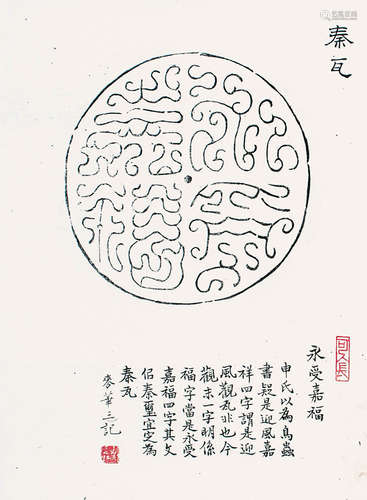 秦瓦
永受嘉福
申氏以為鳥蟲
書疑是迎風嘉
祥四字謂是迎
風觀瓦非也今
觀末一字明係
福字當是永受
嘉福四字其文
佀秦璽宜定為
秦瓦
麥華三記